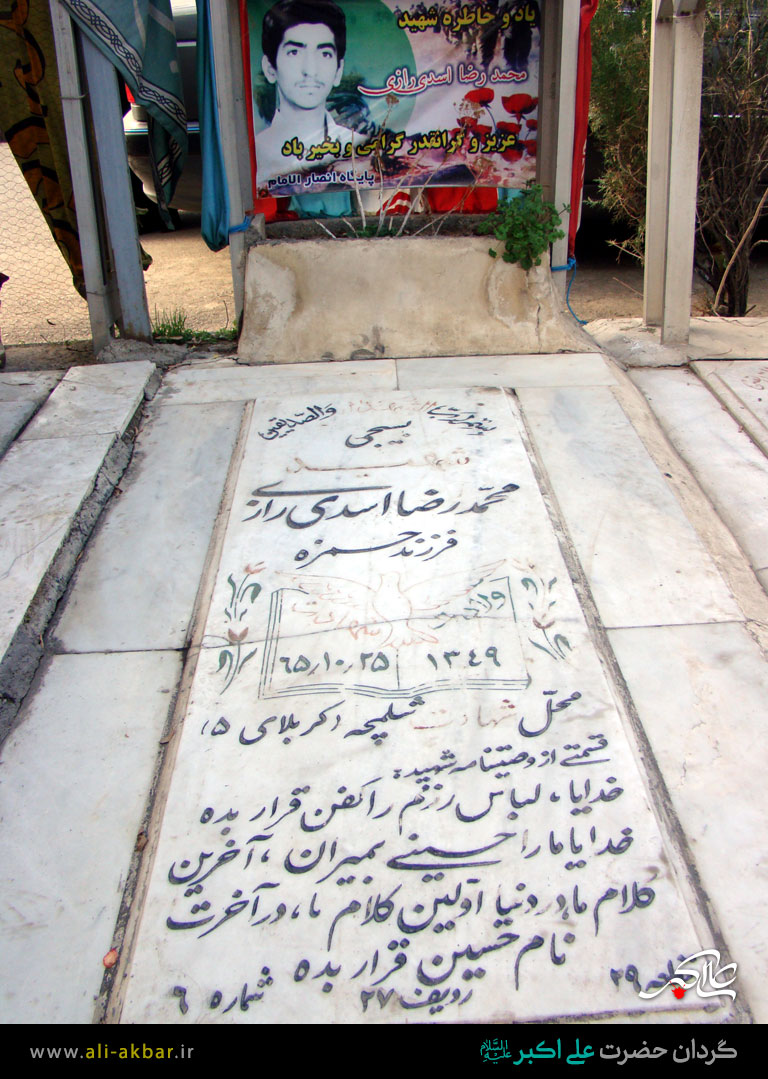 یاد و خاطره شهید
محمد رضا اسدی رازی
عزیز و گرانقدر گرامی و بخیر باد
پایگاه انصار الامام
والصدیقین
بسیجی
شهید
محمّد رضا اسدی رازی
فرزند حمزه
ولادت
شهادت
۱۳۴۹
۶۵٫۱۰٫۲۵
محلّ شهادت شلمچه (کربلای ۵)
قسمتی از وصیتنامه شهید:
خدایا، لباس رزم را کفن قرار بده
خدایا ما را حسینی بمیران، آخرین
کلام ما، در دنیا اوّلین کلام ما، در آخرت
نام حسین قرار بده
قطعه ۲۹
ردیف ۲۷
شماره ۶
علی اکبر
www.ali-akbar.ir
گردان حضرت علی اکبر علیه السلام